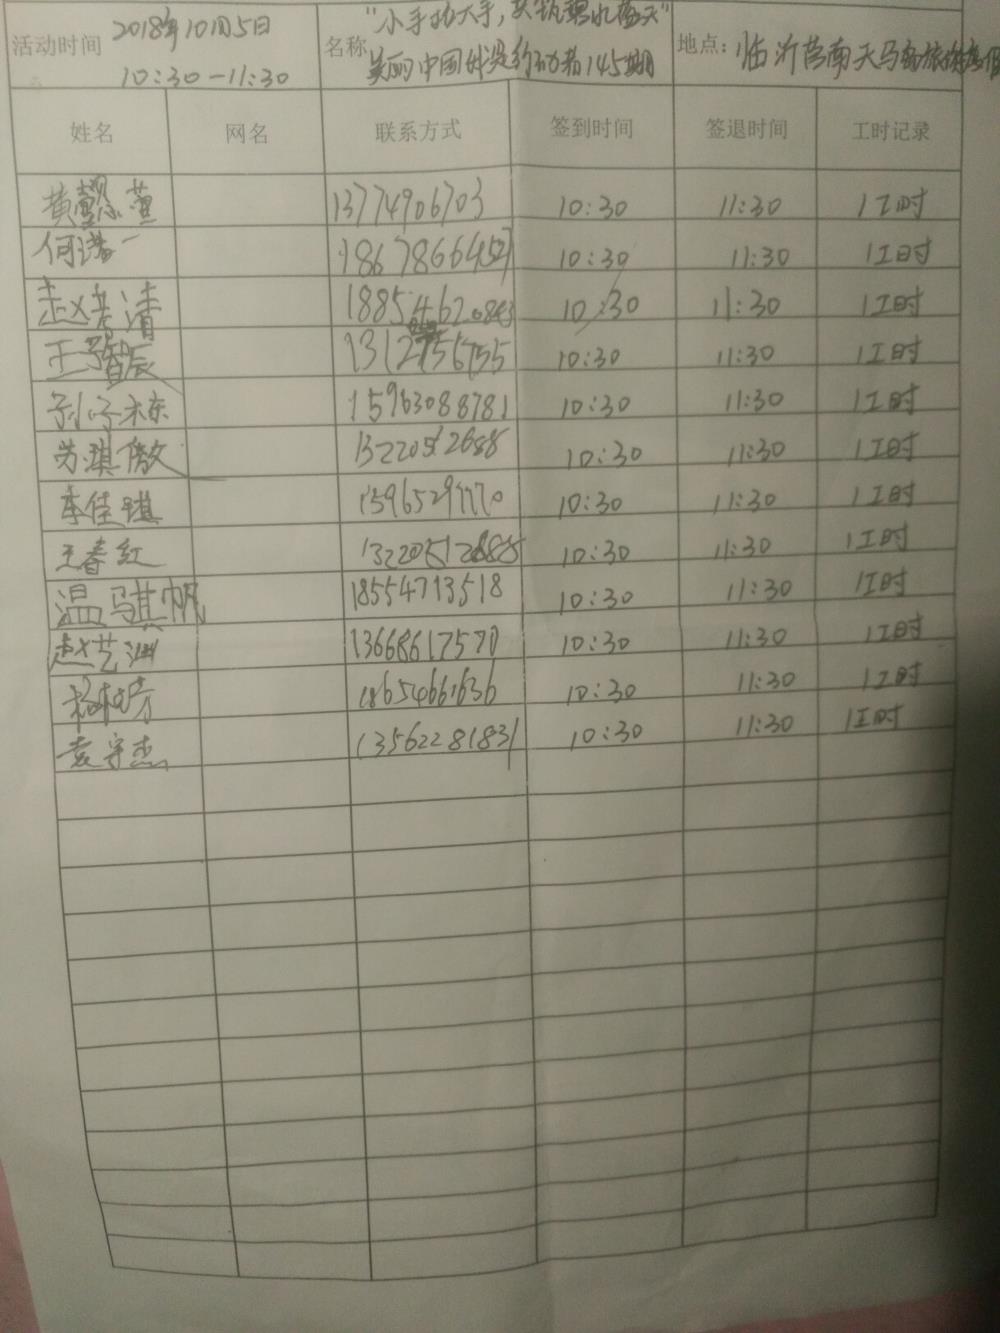 活动时间 2018年10月5日
10:30-11:30
名称 "小手拉大手,共筑碧水蓝天"
美丽中国 行动者145期
地点: 临沂莒南天马岛旅游度假
姓名 网名 联系方式 签到时间 签退时间 工时记录
黄 13774906703 10:30 11:30 1工时
何 一 10:30 11:30 1工时
赵 清 10:30 11:30 1工时
王 辰 10:30 11:30 1工时
15963088781 10:30 11:30 1工时
苏琪傲 10:30 11:30 1工时
李佳 10:30 11:30 1工时
王春红 10:30 11:30 1工时
温骐帆 18554713518 10:30 11:30 1工时
赵艺 13668617570 10:30 11:30 1工时
18654661636 10:30 11:30 1工时
袁守杰 13562281831 10:30 11:30 1工时